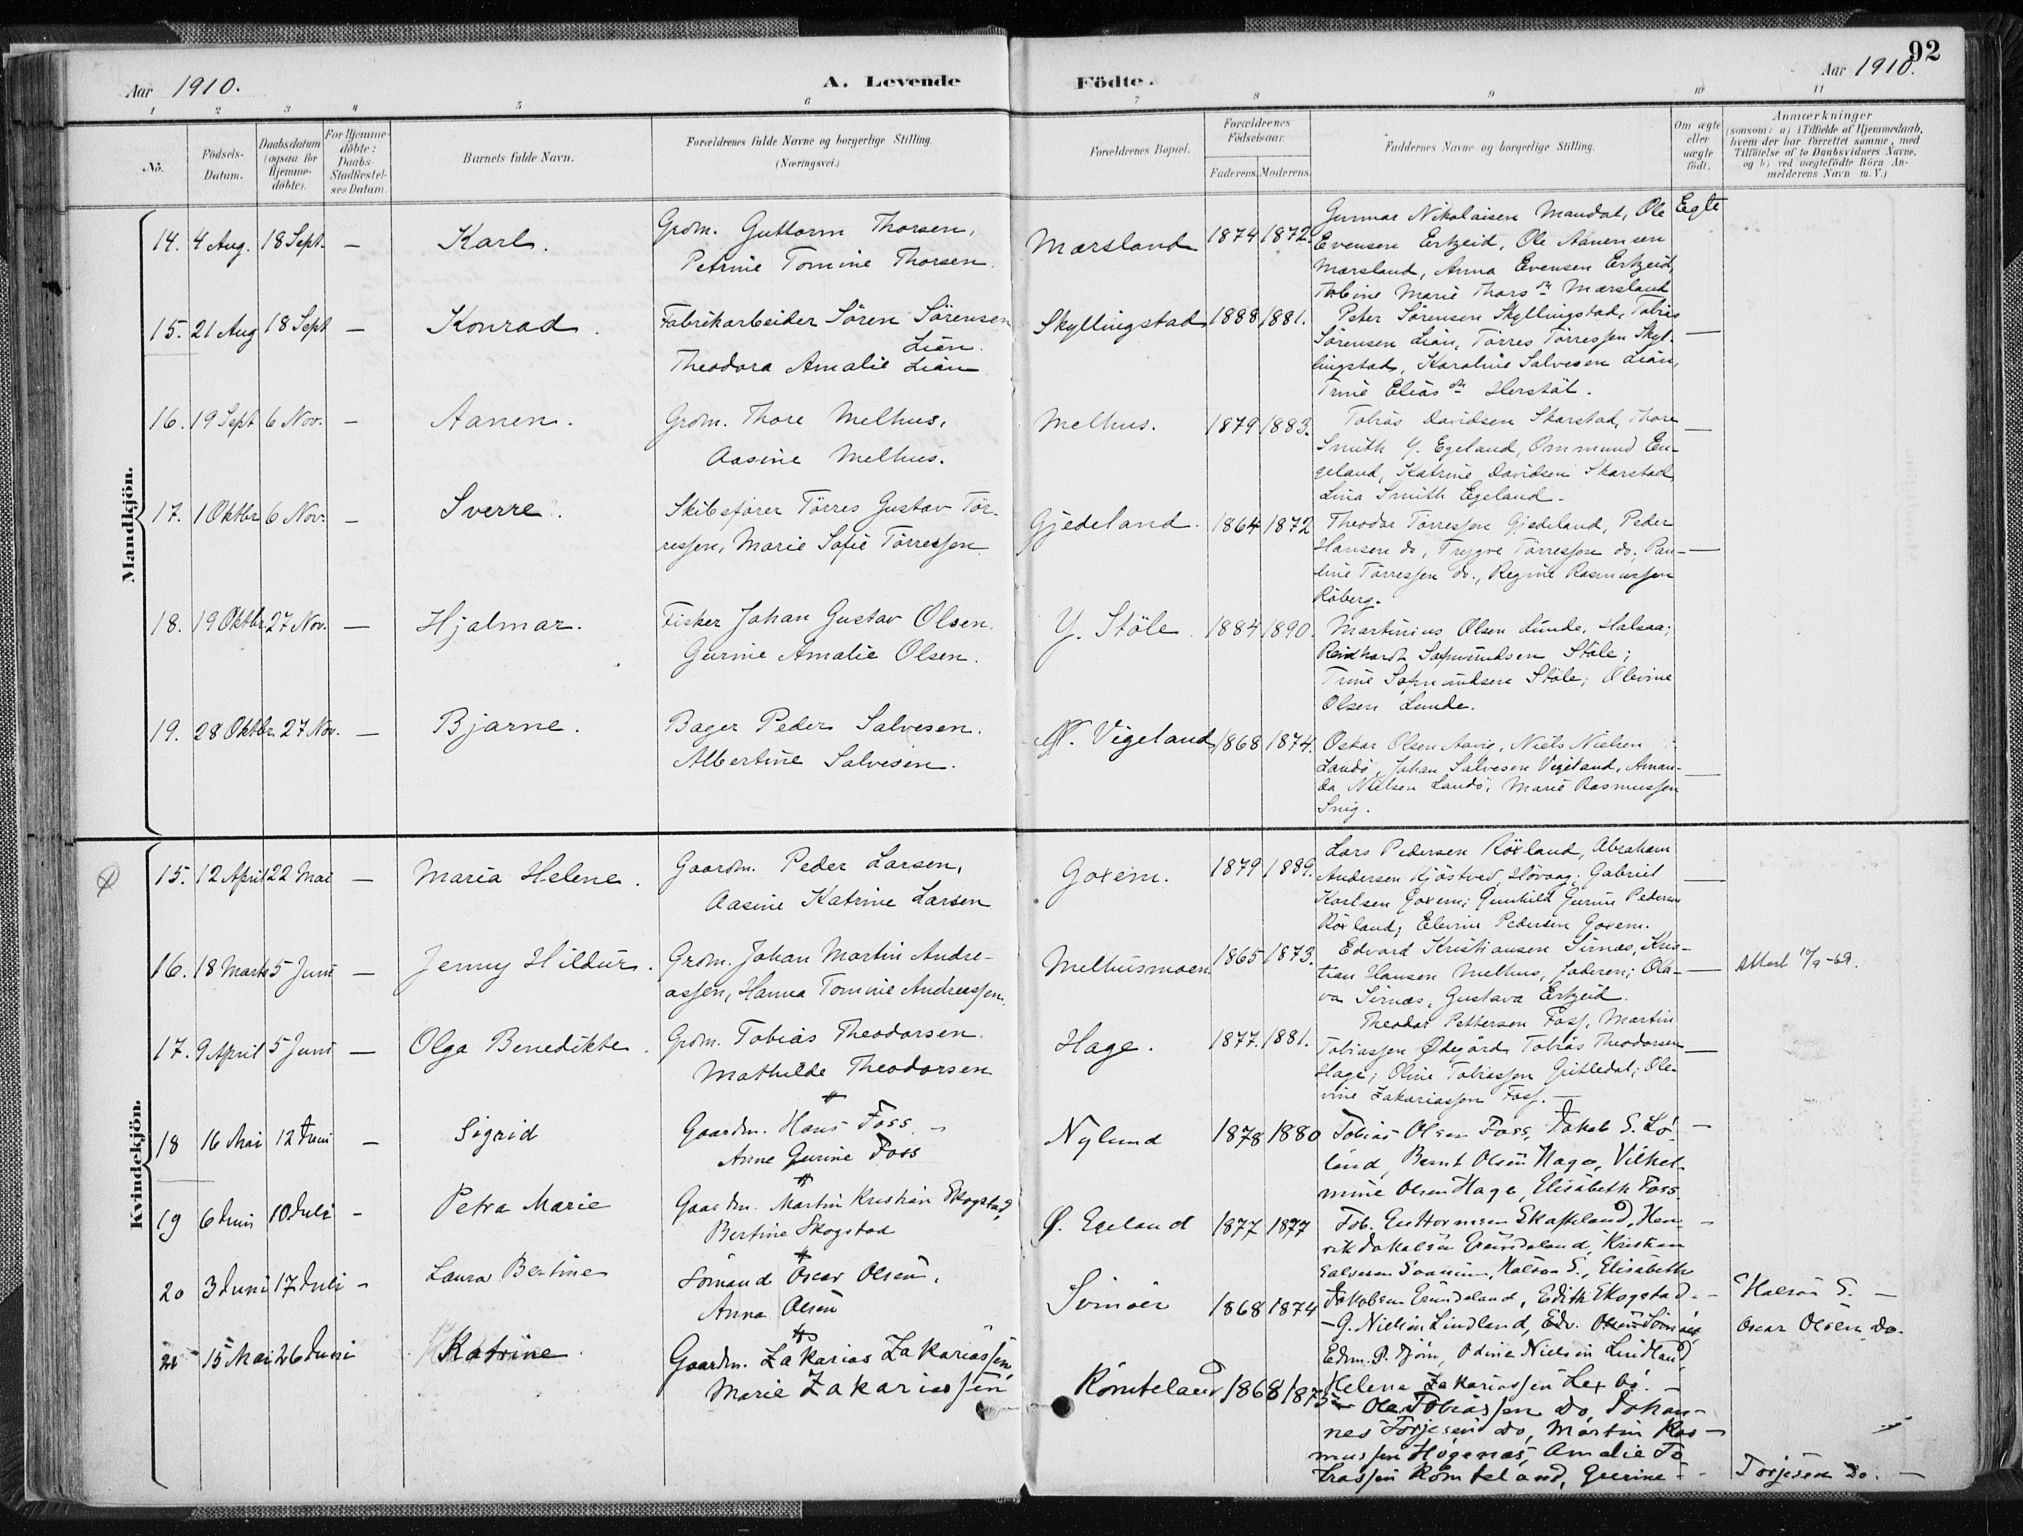 92
Aar 1910.
A. Levende
Födte.
Aar 1910.
1 2 3 4 5 6 7 8 9 10 11
No.
Födsels-
Datum.
Daabsdatum
(ogsaa for
Hjemme-
döbte).
For Hjemme-
döbte:
Daabs-
Stadfæstel-
ses Datum.
Barnets fulde Navn.
Forældrenes fulde Navne og borgerlige Stilling.
(Næringsvei.)
Forældrenes Bopæl.
Forældrenes
Födselsaar.
Faderens. Moderens.
Faddernes Navne og borgerlige Stilling.
Om ægte
eller
uægte
födt.
Anmærkninger
(saasom: a) i Tilfælde af Hjemmedaab,
hvem der har forrettet samme, med
Tilföielse af to Daabsvidners Navne,
og b) ved uægtefödte Börn An-
melderens Navn m. V.)
Mandkjön.
14. 4 Aug. 18 Sept. — Karl. Grdm. Guttorm Thorsen,
Petrine Tomine Thorsen.
Marsland 1874 1872.
Gunnar Nikolaisen Mandal, Ole
Evensen Ertzeid, Ole Aanensen
Marsland, Anna Evensen Ertzeid,
Tobine Marie Thorsdt Marsland
Egte
15. 21 Aug 18 Sept — Konrad. Fabrikarbeider Sören Sörensen
Lian.
Theodora Amalie Lian
Skyllingstad 1888 1881.
Peter Sörensen Skyllingstad, Tobias
Sörensen Lian, Törres Törressen Skyl-
lingstad, Karoline Salvesen Lian,
Trine Eliasdt Herstöl. —
16. 19 Sept 6 Nov. — Aanen. Grdm. Thore Melhus,
Aasine Melhus.
Melhus. 1879 1883.
Tobias Davidsen Skarstad, Thore
Smith Y. Egeland, Ommund En-
geland, Katrine Davidsen Skarstad,
Lina Smith Egeland. —
17. 1 Oktbr 6 Nov. — Sverre. Skibsförer Törres Gustav Tör-
ressen, Marie Sofie Törressen
Gjedeland. 1864 1872
Theodor Törressen Gjedeland, Peder
Hansen do, Trygve Törressen do, Pau-
line Törressen do., Regine Rasmussen
Röberg. —
18. 19 Oktbr. 27 Nov. — Hjalmar. Fisker Johan Gustav Olsen.
Gurine Amalie Olsen.
Y. Stöle 1884 1890.
Martinius Olsen Lunde, Halsaa;
Reinhardt Stöle;
Trine Stöle; Olevine
Olsen Lunde.
19. 28 Oktbr. 27 Nov. — Bjarne. Bager Peder Salvesen.
Albertine Salvesen.
Ø. Vigeland 1868 1874.
Oskar Olsen Aavig, Niels Nielsen
Landö, Johan Salvesen Vigeland, Aman-
da Nielsen Landö, Marie Rasmussen
Snig. —
Kvindekjön.
15. 12 April 22 Mai — Maria Helene. Gaardm. Peder Larsen,
Aasine Katrine Larsen
Goxem. 1879 1889.
Lars Pedersen Röxland, Abraham
Andersen Kjöstved, Hövaag; Gabriel
Karlsen Goxem; Gunhild Gurine Pedersen
Röxland; Elevine Pedersen Goxem. —
16. 18 Marts 5 Juni — Jenny Hildur. Grdm. Johan Martin Andre-
assen, Hanna Tomine Andreassen.
Melhusmoen. 1865 1873.
Edvard Kristiansen Sirnæs, Kris-
tian Hansen Melhus, Faderen; Ola-
va Sirnæs, Gustava Ertzeid. —
Attest 17/9-69.
17. 9 April 5 Juni — Olga Benedikte. Grdm. Tobias Theodorsen
Mathilde Theodorsen
Hage. 1877. 1881.
Theodor Pettersen Foss, Martin
Tobiassen Ødegård, Tobias Theodorsen
Hage; Oline Tobiassen Gritledal; Ole-
vine Zakariassen Foss. —
18 16 Mai 12 Juni — Sigrid Gaardm. Hans Foss
Anne Gurine Foss
Nylund 1878 1880
Tobias Olsen Foss, Jakob S. Lö-
land, Bernt Olsen Hage, Vilhel-
mine Olsen Hage, Elisabeth Foss
19 6 Juni 10 Juli - Petra Marie Gaardm. Martin Kristian Skogstad,
Bertine Skogstad
Ø. Egeland 1877 1877
Tob. Guttormsen Skaffeland, Hen-
rik Jakobsen Grunsdeland, Kristian
Salvesen Halsaa S., Elisabeth
Jakobsen Grunsdeland, Edith Skogstad
20 3 Juni 17 Juli - Laura Bertine Sömand Oscar Olsen,
Anna Olsen
Svinöer 1868 1874
G. Nielsen Lindland, Edv. Olsen Svinöer
Edm. P. Djöm, Odine Nielsen Lindland
Halsaa S. —
Oscar Olsen do.
21 15 Mai 26 Juni Katrine Gaardm. Zakarias Zakariassen,
Marie Zakariassen
Römteland 1868 1875
Helene Zakariassen Lexbö.
Ole Tobiassen do, Johan-
nes Torjesen do, Martin Ras-
mussen Högenæs, Amalie To-
biassen Römteland, Gurine
Torjesen do. —